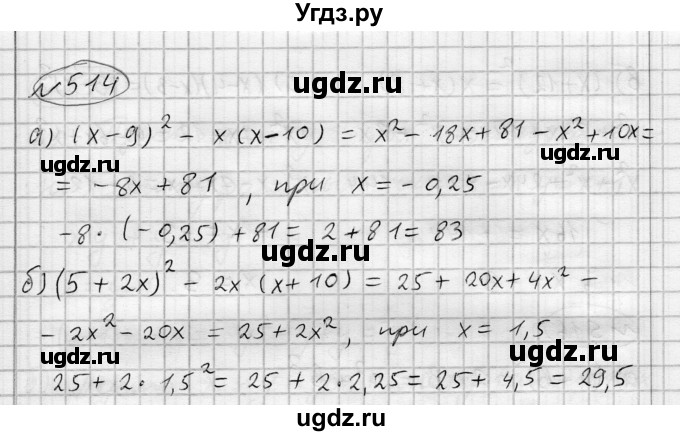 Угдз.ру
№514
ugdz.ru
а) (x-9)² - x(x-10) = x² - 18x + 81 - x² + 10x =
ugdz.ru ugdz.ru
= -8x + 81, при x = -0,25
-8 · (-0,25) + 81 = 2 + 81 = 83
ugdz.ru
б) (5 + 2x)² - 2x (x+10) = 25 + 20x + 4x² -
- 2x² - 20x = 25 + 2x², при x = 1,5
ugdz.ru ugdz.ru
25 + 2 · 1,5² = 25 + 2 · 2,25 = 25 + 4,5 = 29,5
ugdz.ru